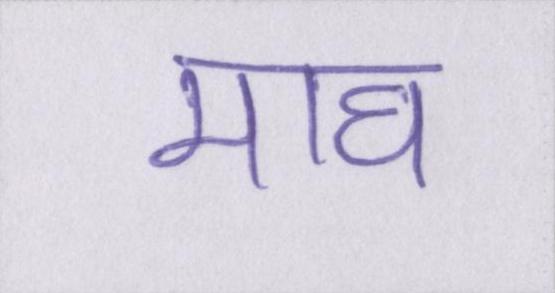 माघ